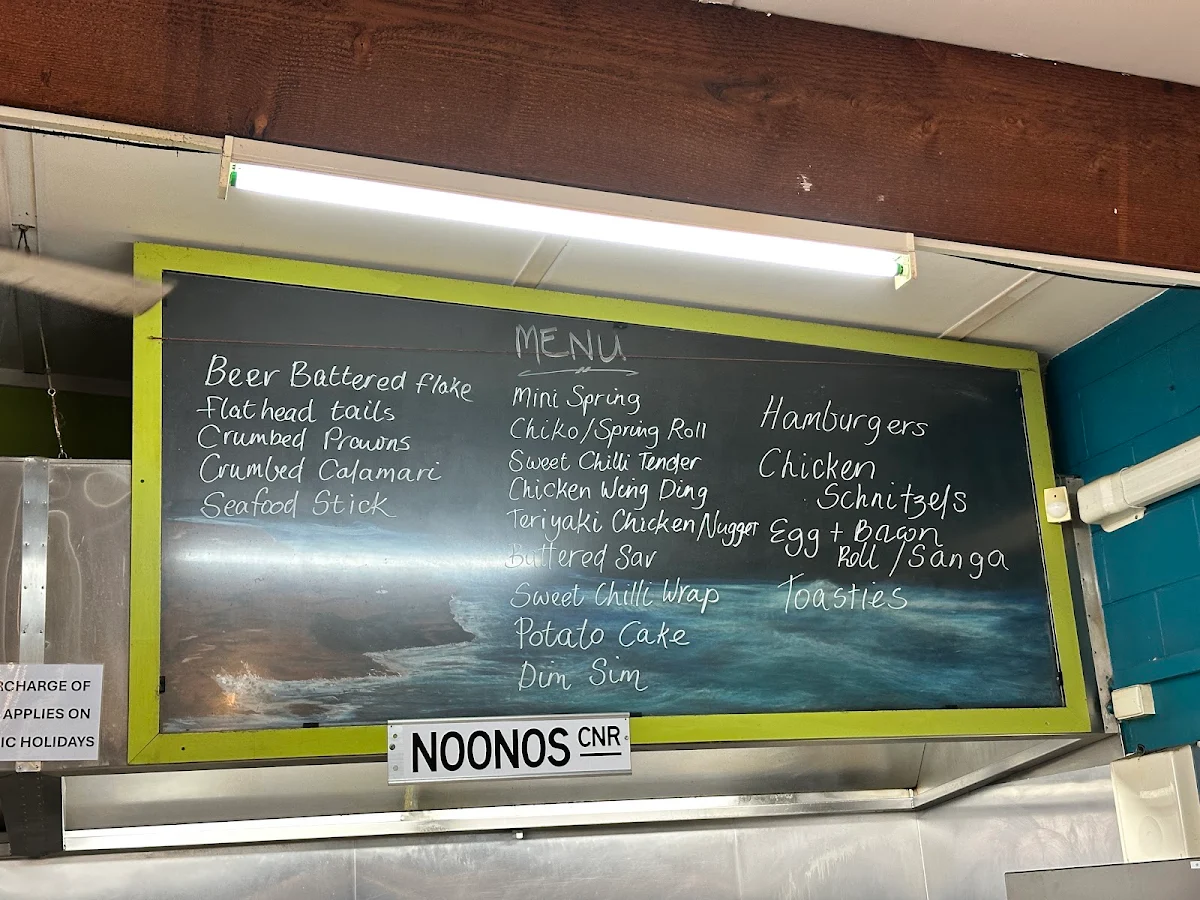 MENU
Beer Battered flake
flathead tails
Crumbed Prawns
Crumbed Calamari
Seafood Stick
Mini Spring
Chiko/Spring Roll
Sweet Chilli Tender
Chicken Wing Ding
Teriyaki Chicken Nugget
Battered Sav
Sweet Chilli Wrap
Potato Cake
Dim Sim
Hamburgers
Chicken
Schnitzels
Egg + Bacon
Roll /Sanga
Toasties
RCHARGE OF
APPLIES ON
IC HOLIDAYS
NOONOS CNR